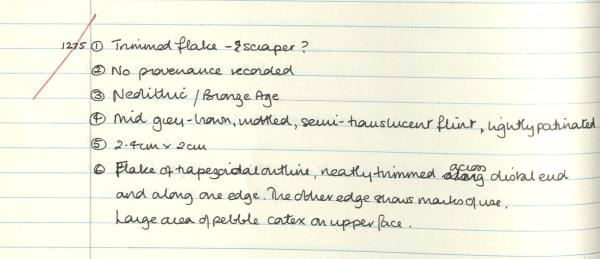 1275 ① Trimmed flake - ? scraper ?
② No provenance recorded
③ Neolithic / Bronze Age
④ Mid grey-brown, mottled, semi-translucent flint, lightly patinated
⑤ 2.4cm x 2cm
⑥ Flake of trapezoidal outline, neatly trimmed across along distal end
and along one edge. The other edge shows marks of use.
Large area of pebble cortex on upper face.